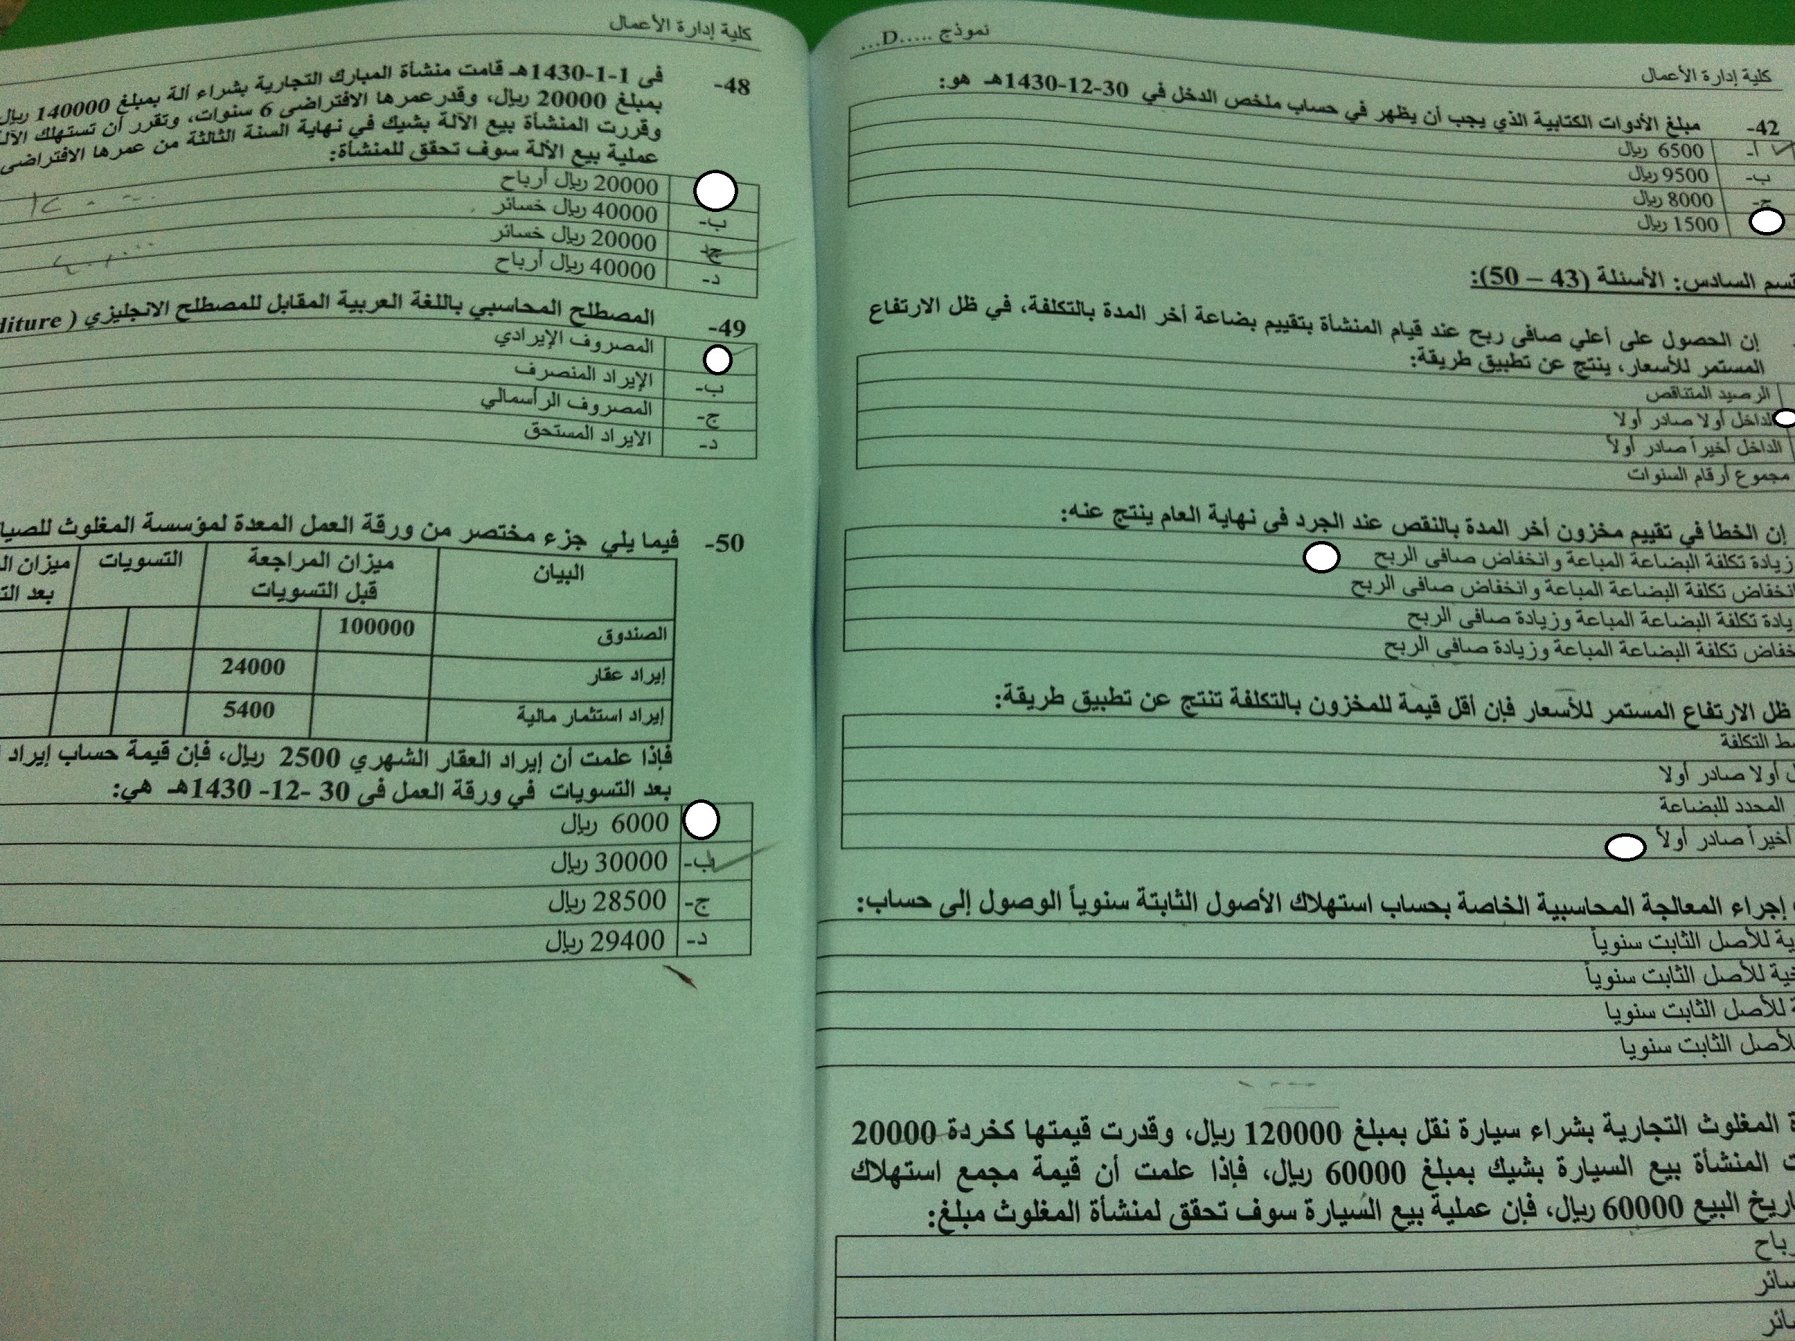 كلية إدارة الأعمال
نموذج .....D...
42- مبلغ الأدوات الكتابية الذي يجب أن يظهر في حساب ملخص الدخل في 30-12-1430هـ هو:
أ- 6500 ريال
ب- 9500 ريال
ج- 8000 ريال
1500 ريال
قسم السادس: الأسئلة (43 – 50):
إن الحصول على أعلي صافى ربح عند قيام المنشأة بتقييم بضاعة أخر المدة بالتكلفة، في ظل الارتفاع
المستمر للأسعار، ينتج عن تطبيق طريقة:
الرصيد المتناقص
الداخل أولا صادر أولا
الداخل أخيراً صادر أولاً
مجموع أرقام السنوات
إن الخطأ في تقييم مخزون أخر المدة بالنقص عند الجرد فى نهاية العام ينتج عنه:
زيادة تكلفة البضاعة المباعة وانخفاض صافى الربح
انخفاض تكلفة البضاعة المباعة وانخفاض صافى الربح
يادة تكلفة البضاعة المباعة وزيادة صافى الربح
خفاض تكلفة البضاعة المباعة وزيادة صافى الربح
ظل الارتفاع المستمر للأسعار فإن أقل قيمة للمخزون بالتكلفة تنتج عن تطبيق طريقة:
ط التكلفة
أولا صادر أولا
المحدد للبضاعة
أخيراً صادر أولاً
إجراء المعالجة المحاسبية الخاصة بحساب استهلاك الأصول الثابتة سنوياً الوصول إلى حساب:
ية للأصل الثابت سنوياً
ية للأصل الثابت سنوياً
للأصل الثابت سنويا
لأصل الثابت سنويا
ة المغلوث التجارية بشراء سيارة نقل بمبلغ 120000 ريال، وقدرت قيمتها كخردة 20000
ت المنشأة بيع السيارة بشيك بمبلغ 60000 ريال، فإذا علمت أن قيمة مجمع استهلاك
اريخ البيع 60000 ريال، فإن عملية بيع السيارة سوف تحقق لمنشأة المغلوث مبلغ:
رباح
سائر
سائر
كلية إدارة الأعمال
48- فى 1-1-1430هـ قامت منشأة المبارك التجارية بشراء ألة بمبلغ 140000 ريال
بمبلغ 20000 ريال، وقدر عمرها الافتراضى 6 سنوات، وتقرر أن تستهلك الآلة
وقررت المنشأة بيع الآلة بشيك في نهاية السنة الثالثة من عمرها الافتراضى
عملية بيع الألة سوف تحقق للمنشأة:
20000 ريال أرباح
ب- 40000 ريال خسائر
ج- 20000 ريال خسائر
د- 40000 ريال أرباح
49- المصطلح المحاسبي باللغة العربية المقابل للمصطلح الانجليزي ( diture
المصروف الإيرادي
ب- الإيراد المنصرف
ج- المصروف الرأسمالي
د- الايراد المستحق
50- فيما يلي جزء مختصر من ورقة العمل المعدة لمؤسسة المغلوث للصيا
البيان ميزان المراجعة قبل التسويات التسويات ميزان ال بعد الت
الصندوق 100000
إيراد عقار 24000
إيراد استثمار مالية 5400
فإذا علمت أن إيراد العقار الشهري 2500 ريال، فإن قيمة حساب إيراد
بعد التسويات في ورقة العمل فى 30 -12- 1430هـ هي:
6000 ريال
ب- 30000 ريال
ج- 28500 ريال
د- 29400 ريال